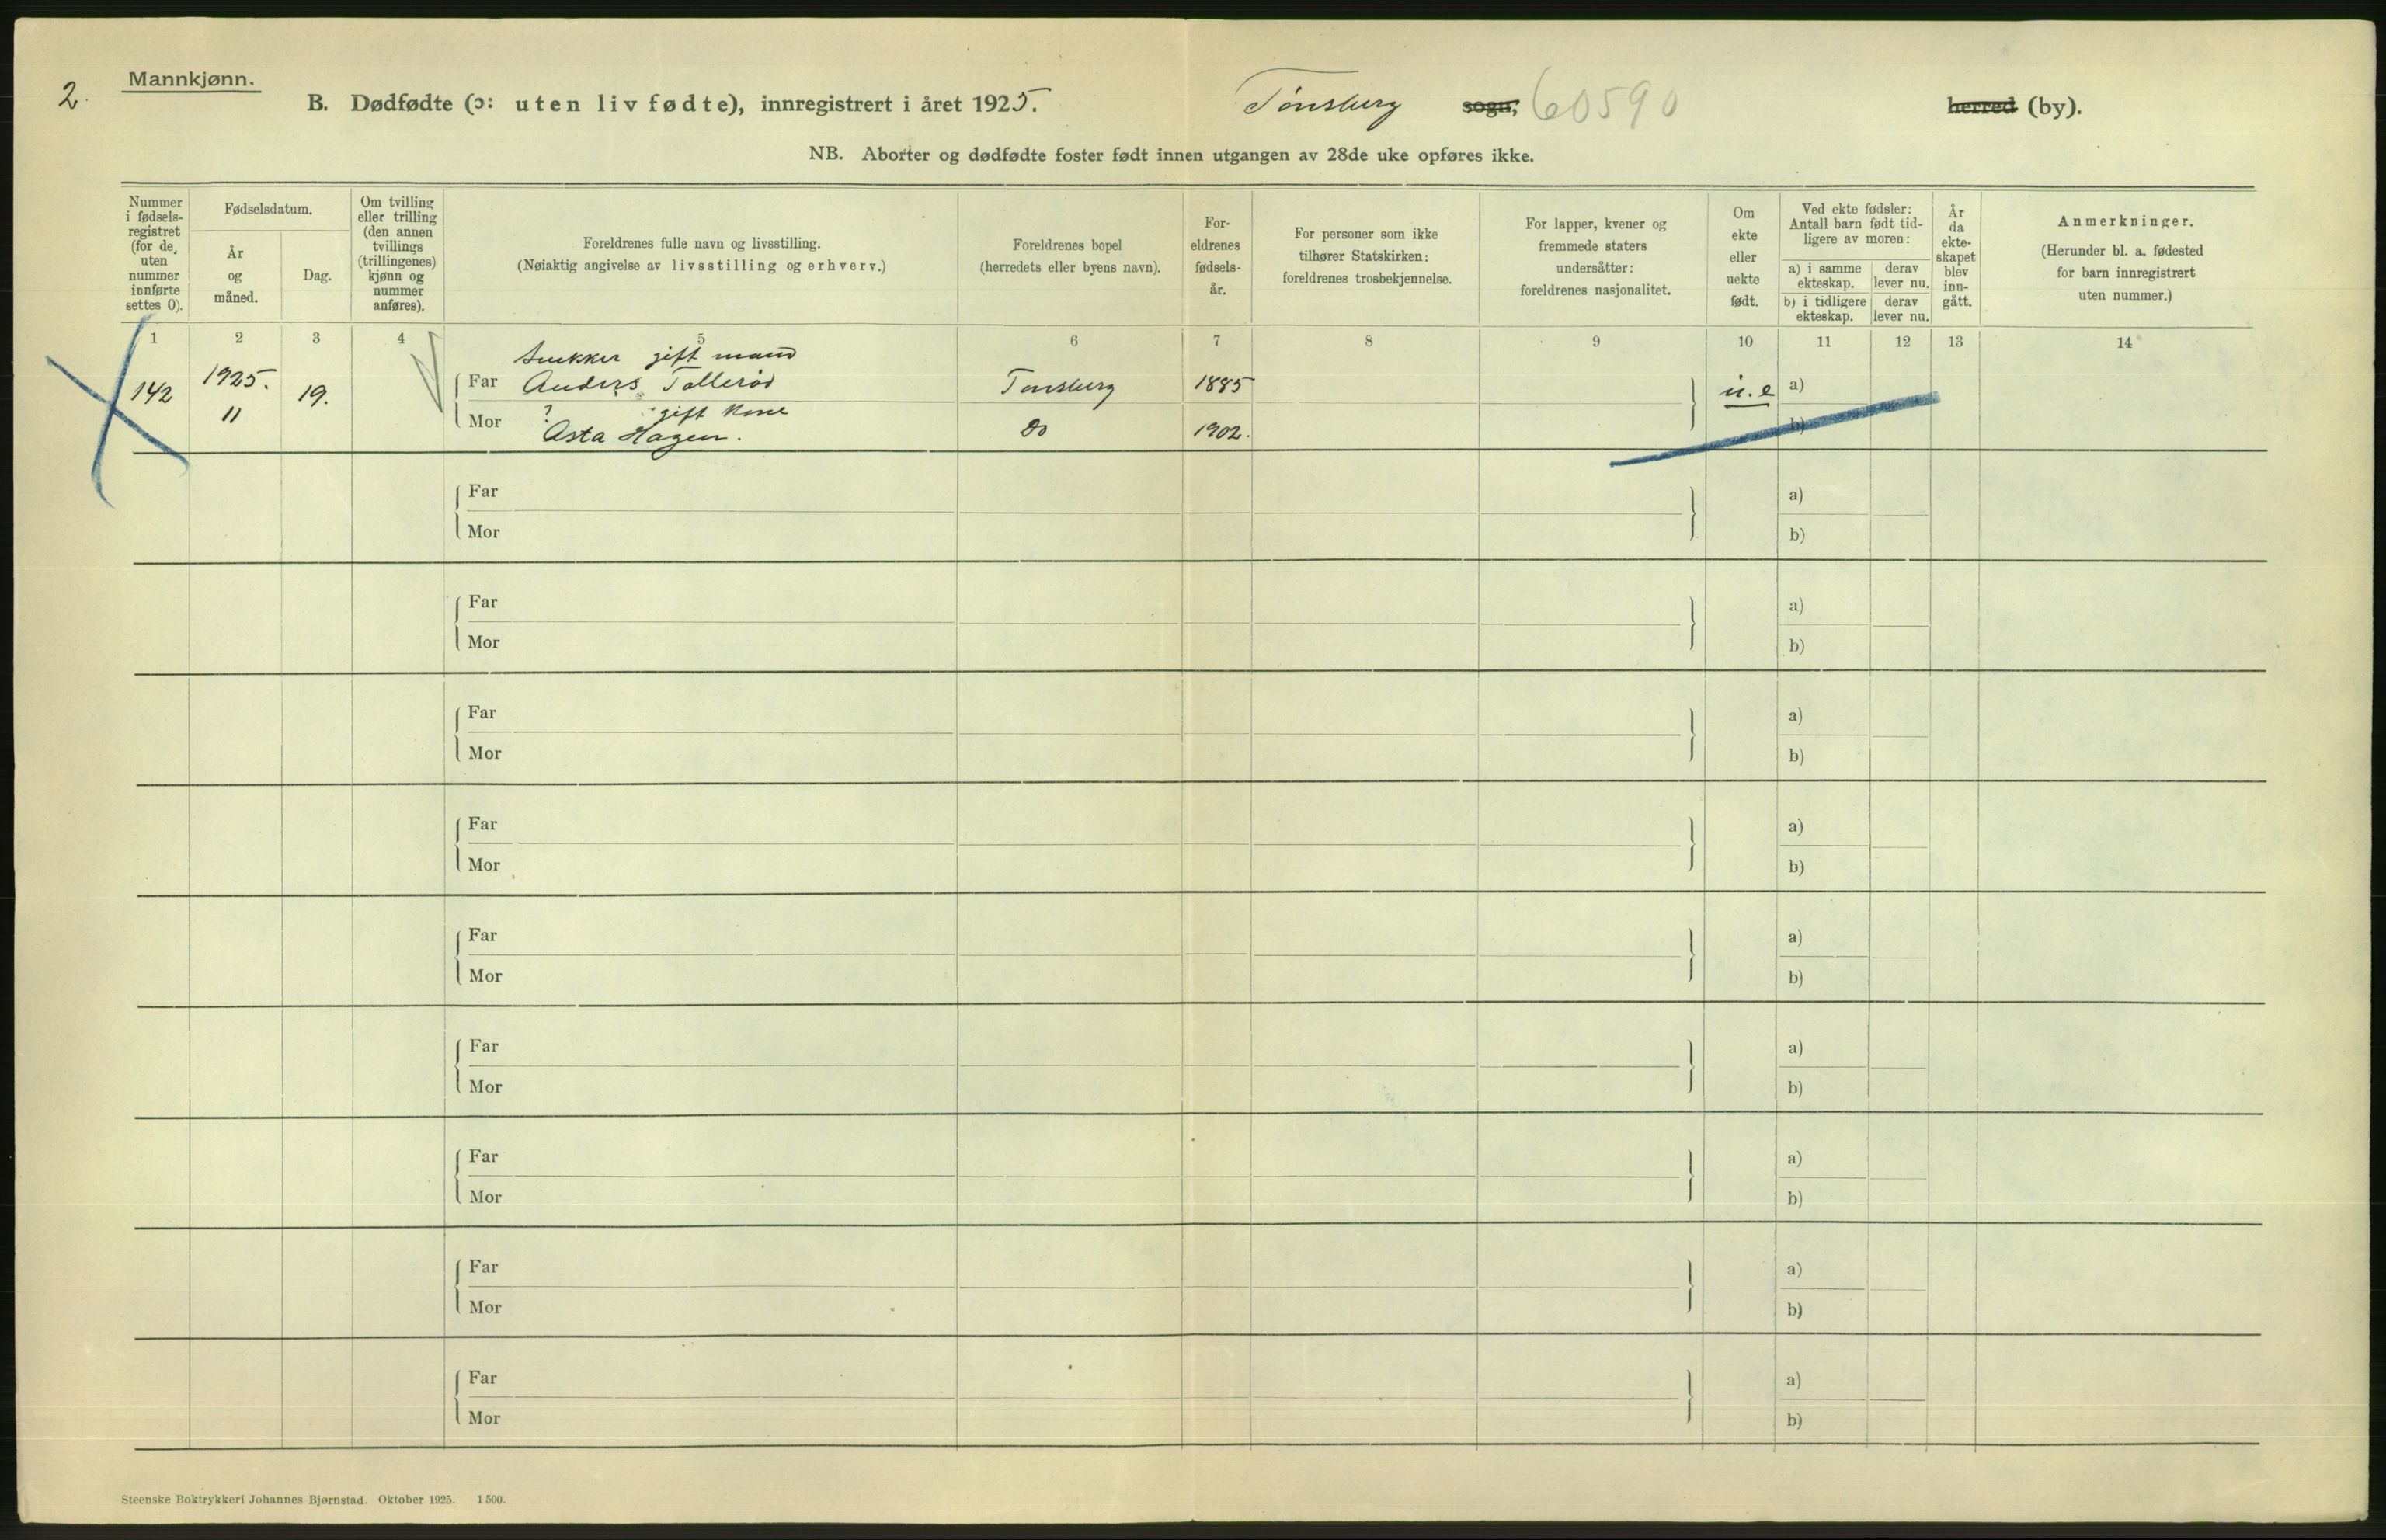 2.
Mannkjønn.
B. Dødfødte (ɔ: uten liv fødte), innregistrert i året 1925.
Tønsberg sogn, 60590 herred (by).
NB. Aborter og dødfødte foster født innen utgangen av 28de uke opføres ikke.
Nummer i fødselsregistret (for de uten nummer innførte settes 0).
Fødselsdatum.
År og måned.
Dag.
Om tvilling eller trilling (den annen tvillings (trillingenes) kjønn og nummer anføres).
Foreldrenes fulle navn og livsstilling.
(Nøiaktig angivelse av livsstilling og erhverv.)
Foreldrenes bopel
(herredets eller byens navn).
Foreldrenes fødselsår.
For personer som ikke tilhører Statskirken: foreldrenes trosbekjennelse.
For lapper, kvener og fremmede staters undersåtter: foreldrenes nasjonalitet.
Om ekte eller uekte født.
Ved ekte fødsler: Antall barn født tidligere av moren:
a) i samme ekteskap. derav lever nu.
b) i tidligere ekteskap. derav lever nu.
År da ekteskapet blev inngått.
Anmerkninger.
(Herunder bl. a. fødested for barn innregistrert uten nummer.)
1 2 3 4 5 6 7 8 9 10 11 12 13 14
Snekker gift mand
142 1925. 19. Far Anders Tallerød Tønsberg 1885 u.e a)
11 ? gift Kone
Mor Asta Hagen. Do 1902. b)
Far a)
Mor b)
Far a)
Mor b)
Far a)
Mor b)
Far a)
Mor b)
Far a)
Mor b)
Far a)
Mor b)
Far a)
Mor b)
Far a)
Mor b)
Far a)
Mor b)
Steenske Boktrykkeri Johannes Bjørnstad. Oktober 1925. 1500.